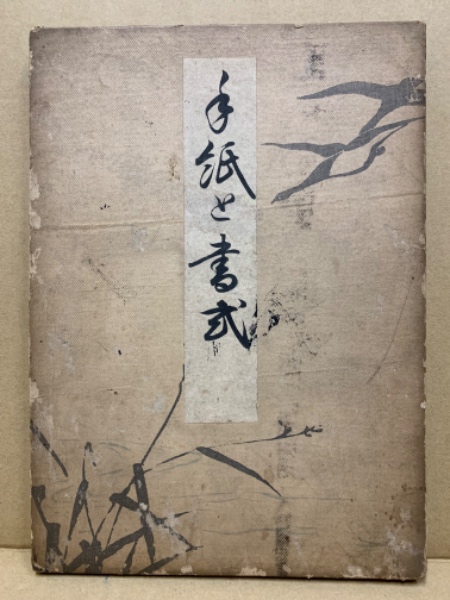 手紙と書式